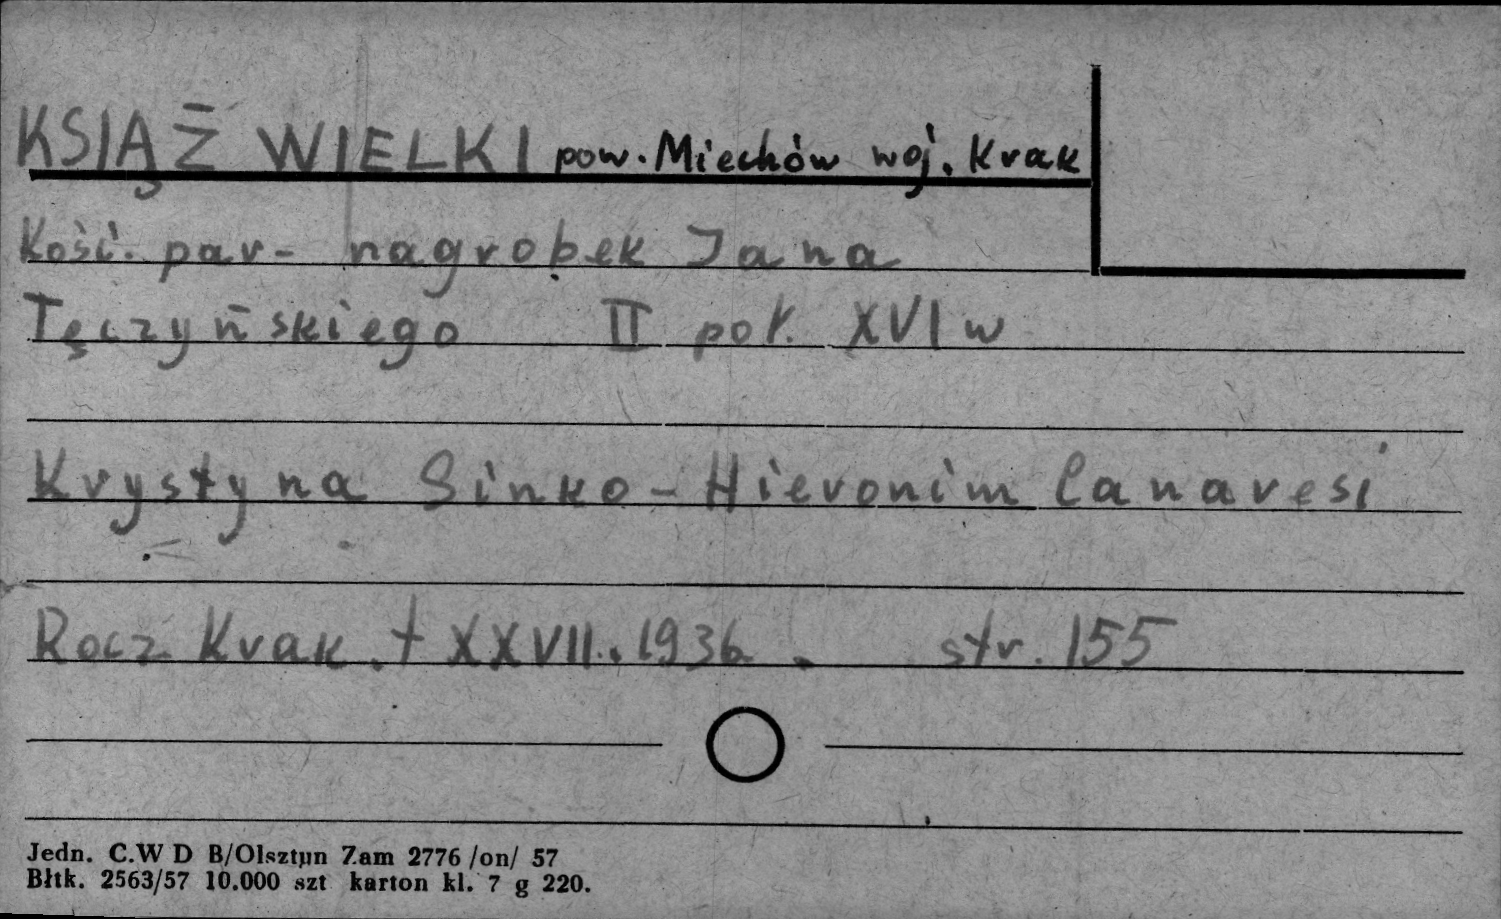 KSIĄŻ WIELKI pow. Miechów woj. Krak
Kość. par- nagrobek Jana
Tęczyńskiego II poł. XVI w
Krystyna Sinko - Hieronim Canavesi
Rocz Krak. t XXVII. 1936. str. 155
Jedn. C.W D B/Olsztyn Zam 2776 /on/ 57
Błtk. 2563/57 10.000 szt karton kl. 7 g 220.